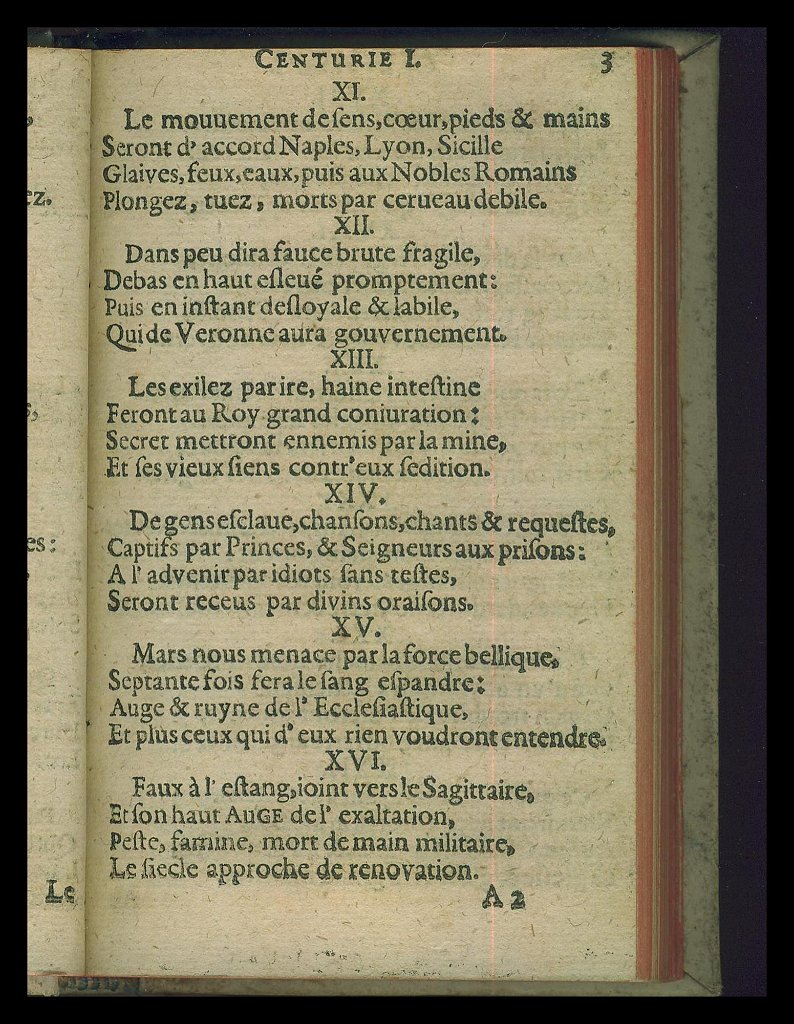 CENTURIE I. 3
XI.
Le mouuement de ſens, cœur, pieds & mains
Seront d' accord Naples, Lyon, Sicille
Glaives, feux, eaux, puis aux Nobles Romains
Plongez, tuez, morts par cerueau debile.
XII.
Dans peu dira fauce brute fragile,
Debas en haut eſleué promptement:
Puis en inſtant deſloyale & labile,
Qui de Veronne aura gouvernement.
XIII.
Les exilez par ire, haine inteſtine
Feront au Roy grand coniuration:
Secret mettront ennemis par la mine,
Et ſes vieux ſiens contr'eux ſedition.
XIV.
De gens eſclaue, chanſons, chants & requeſtes,
Captifs par Princes, & Seigneurs aux priſons:
A l' advenir par idiots ſans teſtes,
Seront receus par divins oraiſons.
XV.
Mars nous menace par la force bellique,
Septante fois fera le ſang eſpandre:
Auge & ruyne de l' Eccleſiaſtique,
Et plus ceux qui d' eux rien voudront entendre.
XVI.
Faux à l' eſtang, ioint vers le Sagittaire,
Et ſon haut AUGE de l' exaltation,
Peſte, famine, mort de main militaire,
Le ſiecle approche de renovation.
A 2
ez.
es:
Le